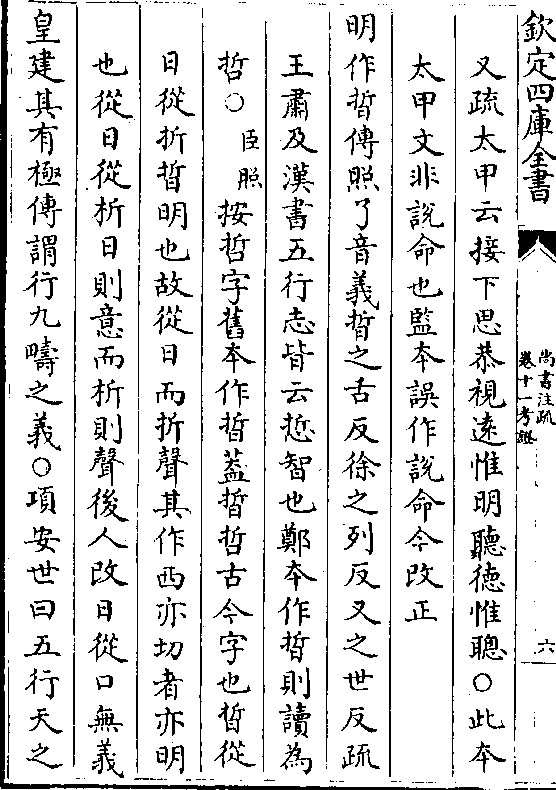 欽定四庫全書
尚書注疏
卷十一考證
六
又疏太甲云接下思恭視逺惟明聽徳惟聰○此本
太甲文非說命也監本誤作說命今改正
明作晢傳照了音義晢之舌反徐之列反又之世反疏
王肅及漢書五行志皆云悊智也鄭本作晢則讀為
哲○臣照按哲字舊本作晢葢晢哲古今字也晢從
日從折晢明也故從日而折聲其作西亦切者亦明
也從日從析日則意而析則聲後人改日從口無義
皇建其有極傳謂行九疇之義○項安世曰五行天之